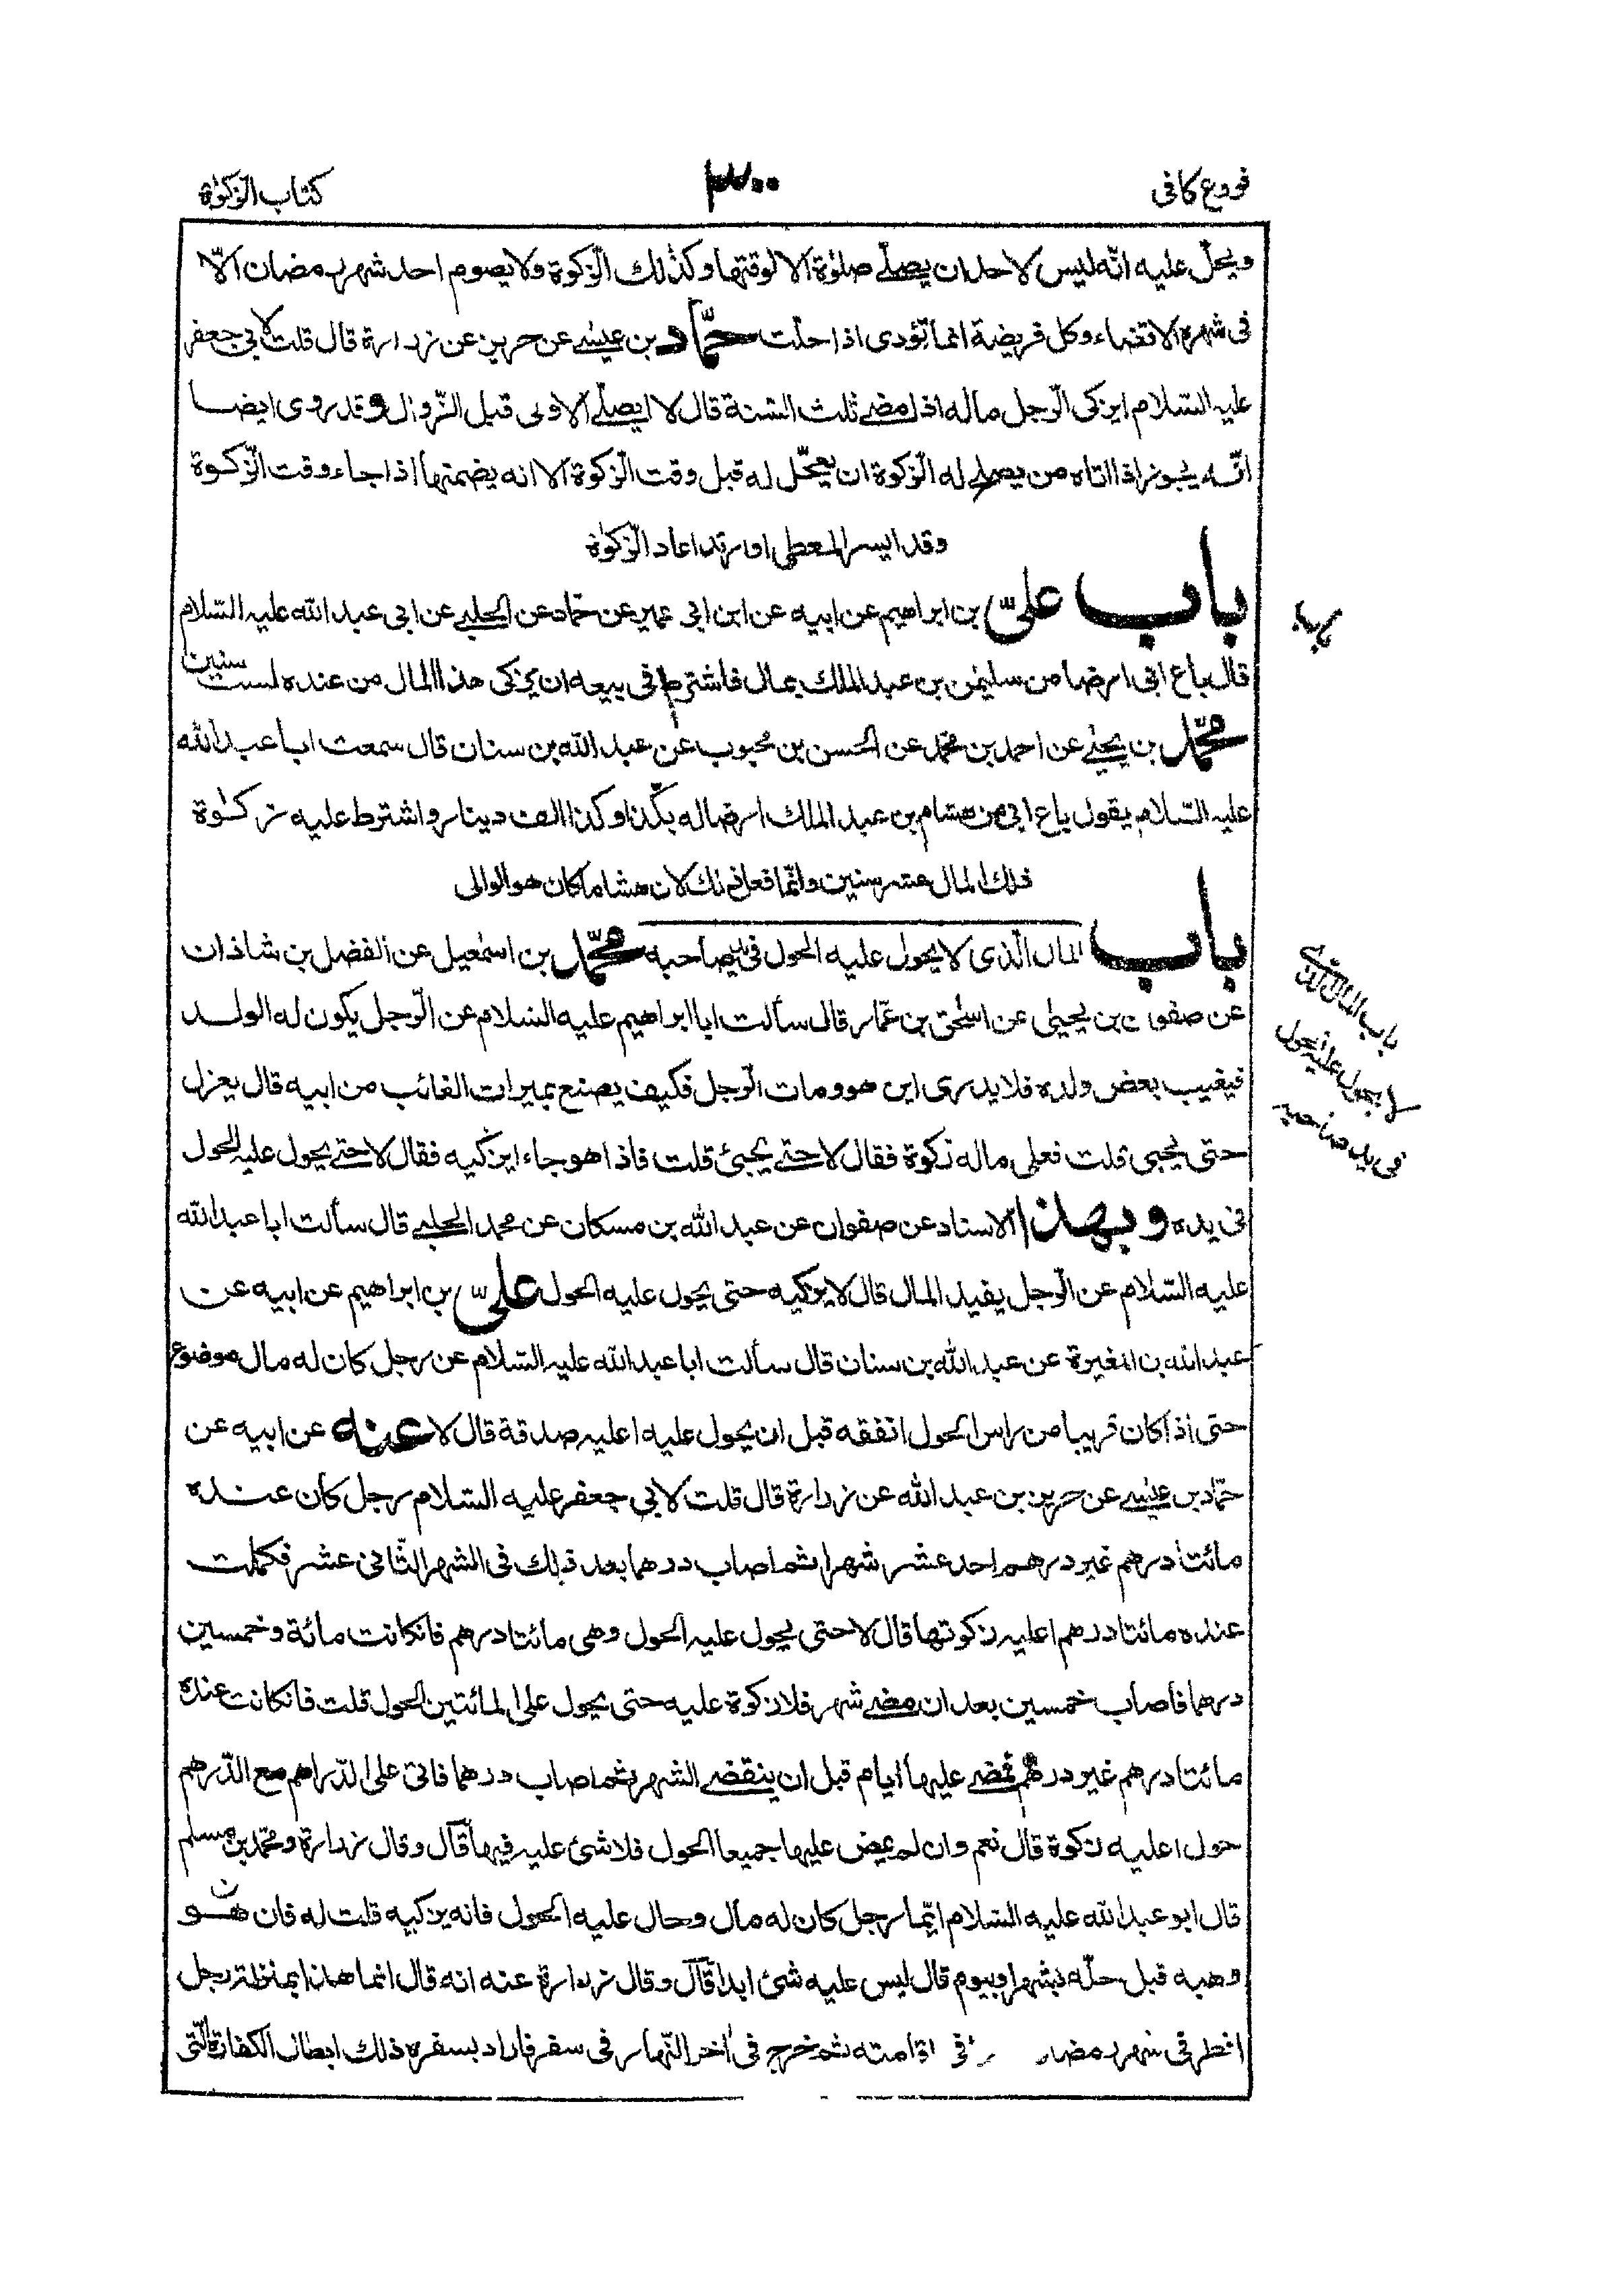 فروع كافى
٣٠٠
كتاب الزكوٰة
ويحلّ عليه انّه ليس لاحد ان يصلّے صلوٰة الا لوقتها وكذٰلك الزّكوة ولا يصوم احد شهر رمضان الّا
فى شهره الا قضاء وكل فريضة انما تؤدى اذا حلّت حمّاد بن عيسٰے عن حريز عن زرارة قال قلت لابى جعفر
عليه السّلام ايزكى الرّجل ماله اذا مضے ثلث السّنة قال لا ايصلّے الاولى قبل الزّوال وقد روى ايضا
انّه يجوز اذا اتاه من يصلح له الزّكوة ان يعجّل له قبل وقت الزّكوة الا انه يضمنها اذا جاء وقت الزّكوة
وقد ايسر المعطى او ارتد اعاد الزّكوٰة
باب علىّ بن ابراهيم عن ابيه عن ابن ابى عمير عن حمّاد عن الحلبے عن ابى عبد الله عليه السّلام
باب
قال باع ابى ارضا من سليمٰن بن عبد الملك بمال فاشترط فى بيعه ان يزكى هذا المال من عنده لست سنين
محمّد بن يحيٰے عن احمد بن محمّد عن الحسن بن محبوب عن عبد الله بن سنان قال سمعت ابا عبد الله
عليه السّلام يقول باع ابى من هشام بن عبد الملك ارضا له بكذا وكذا الف دينار واشترط عليه زكوٰة
ذلك المال عشر سنين وانّما فعل ذلك لان هشاما كان هو الوالى
باب المال الّذى لا يحول عليه الحول فى يد صاحبه محمّد بن اسمٰعيل عن الفضل بن شاذان
باب المال الذى
لا يحول عليه الحول
فى يد صاحبه
عن صفوان بن يحيىٰ عن اسحٰق بن عمّار قال سألت ابا ابراهيم عليه السّلام عن الرّجل يكون له الولد
فيغيب بعض ولده فلا يدرى اين هو ومات الرّجل فكيف يصنع بميراث الغائب من ابيه قال يعزل
حتى يجيى قلت فعلى ماله زكوة فقال لا حتے يجيئ قلت فاذا هو جاء ايزكيه فقال لا حتے يحول عليه الحول
فى يده وبهذا الاسناد عن صفوان عن عبد الله بن مسكان عن محمد الحلبے قال سألت ابا عبد الله
عليه السّلام عن الرّجل يفيد المال قال لا يزكيه حتى يحول عليه الحول علىّ بن ابراهيم عن ابيه عن
عبد الله بن المغيرة عن عبد الله بن سنان قال سألت ابا عبد الله عليه السّلام عن رجل كان له مال موضوع
حتى اذا كان قريبا من راس الحول انفقه قبل ان يحول عليه اعليه صدقة قال لا عنه عن ابيه عن
حمّاد بن عيسٰے عن حريز بن عبد الله عن زرارة قال قلت لابى جعفر عليه السّلام رجل كان عنده
مائتا درهم غير درهم احد عشر شهرا ثم اصاب درهما بعد ذلك فى الشهر الثّانى عشر فكملت
عنده مائتا درهم اعليه زكوتها قال لا حتى يحول عليه الحول وهى مائتا درهم فان كانت مائة وخمسين
درهما فاصاب خمسين بعد ان مضے شهر فلا زكوة عليه حتى يحول على المائتين الحول قلت فان كانت عنده
مائتا درهم غير درهم فمضے عليها ايام قبل ان ينقضے الشهر ثم اصاب درهما فاتى على الدّراهم مع الدّرهم
حول اعليه زكوة قال نعم وان لم يمض عليها جميعا الحول فلا شئ عليه فيها قال وقال زرارة ومحمّد بن مسلم
قال ابو عبد الله عليه السّلام ايّما رجل كان له مال وحال عليه الحول فانه يزكيه قلت له فان هو
وهبه قبل حلّه بشهر او بيوم قال ليس عليه شئ ابدا قال وقال زرارة عنه انه قال انما هذا بمنزلة رجل
افطر فى شهر رمضان فى اقامته ثم خرج فى اٰخر النّهار فى سفر فاراد بسفره ذلك ابطال الكفارة الّتى